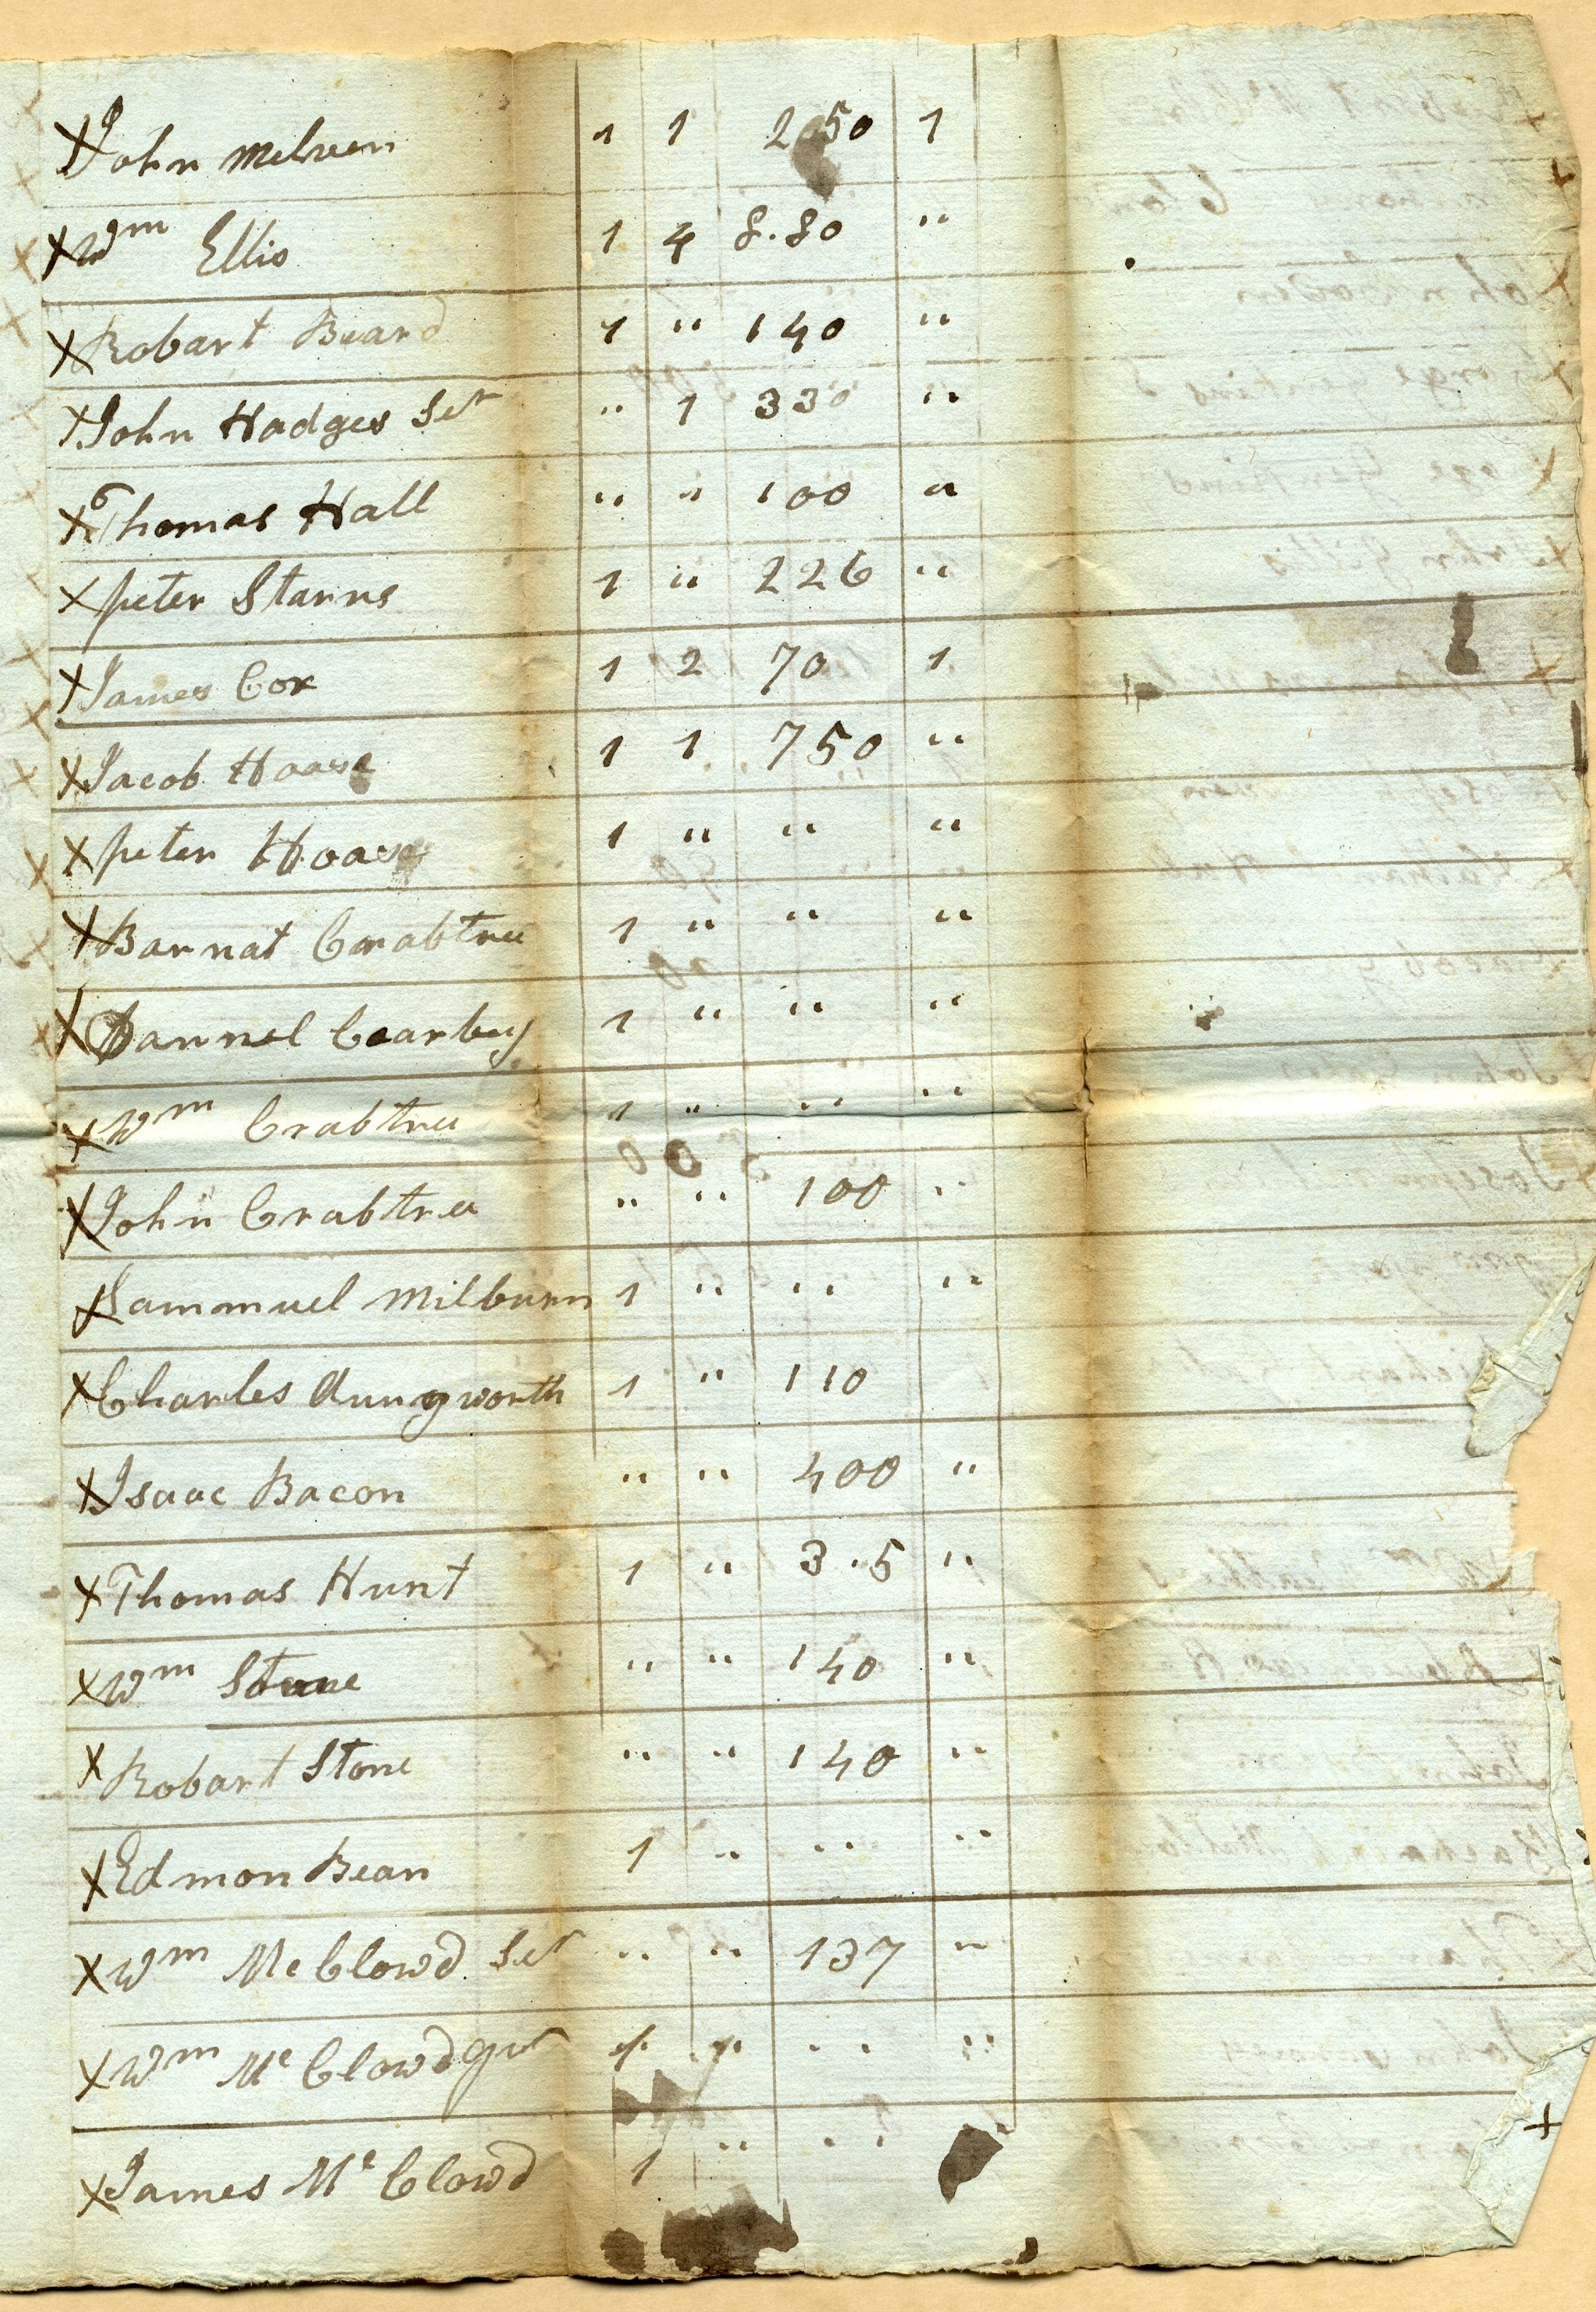 X John Melveen 1 1 250 1
X Wm Ellis 1 4 8.80 "
X Robart Beard 1 " 140 "
X John Hadges Ser " 1 330 "
X Thomas Hall " " 100 "
X peter Starns 1 " 226 "
X James Cox 1 2 70 1
X Jacob Hoase 1 1 750 "
X peter Hoase 1 " " "
X Barnat Crabtree 1 " " "
X Dannel Cearbey 1 " " "
X Wm Crabtree 1 " " "
X John Crabtree " " 100 "
X Sammuel Milburn 1 " " "
X Charles Aungworth 1 " 110
X Isaac Bacon " " 400 "
X Thomas Hunt 1 " 3.5 "
X Wm Stone " " 140 "
X Robart Stone " " 140 "
X Edmon Bean 1 " " "
X Wm Mc Clowd Ser " " 137 "
X Wm Mc Clowd " "
X James Mc Clowd 1 " " "